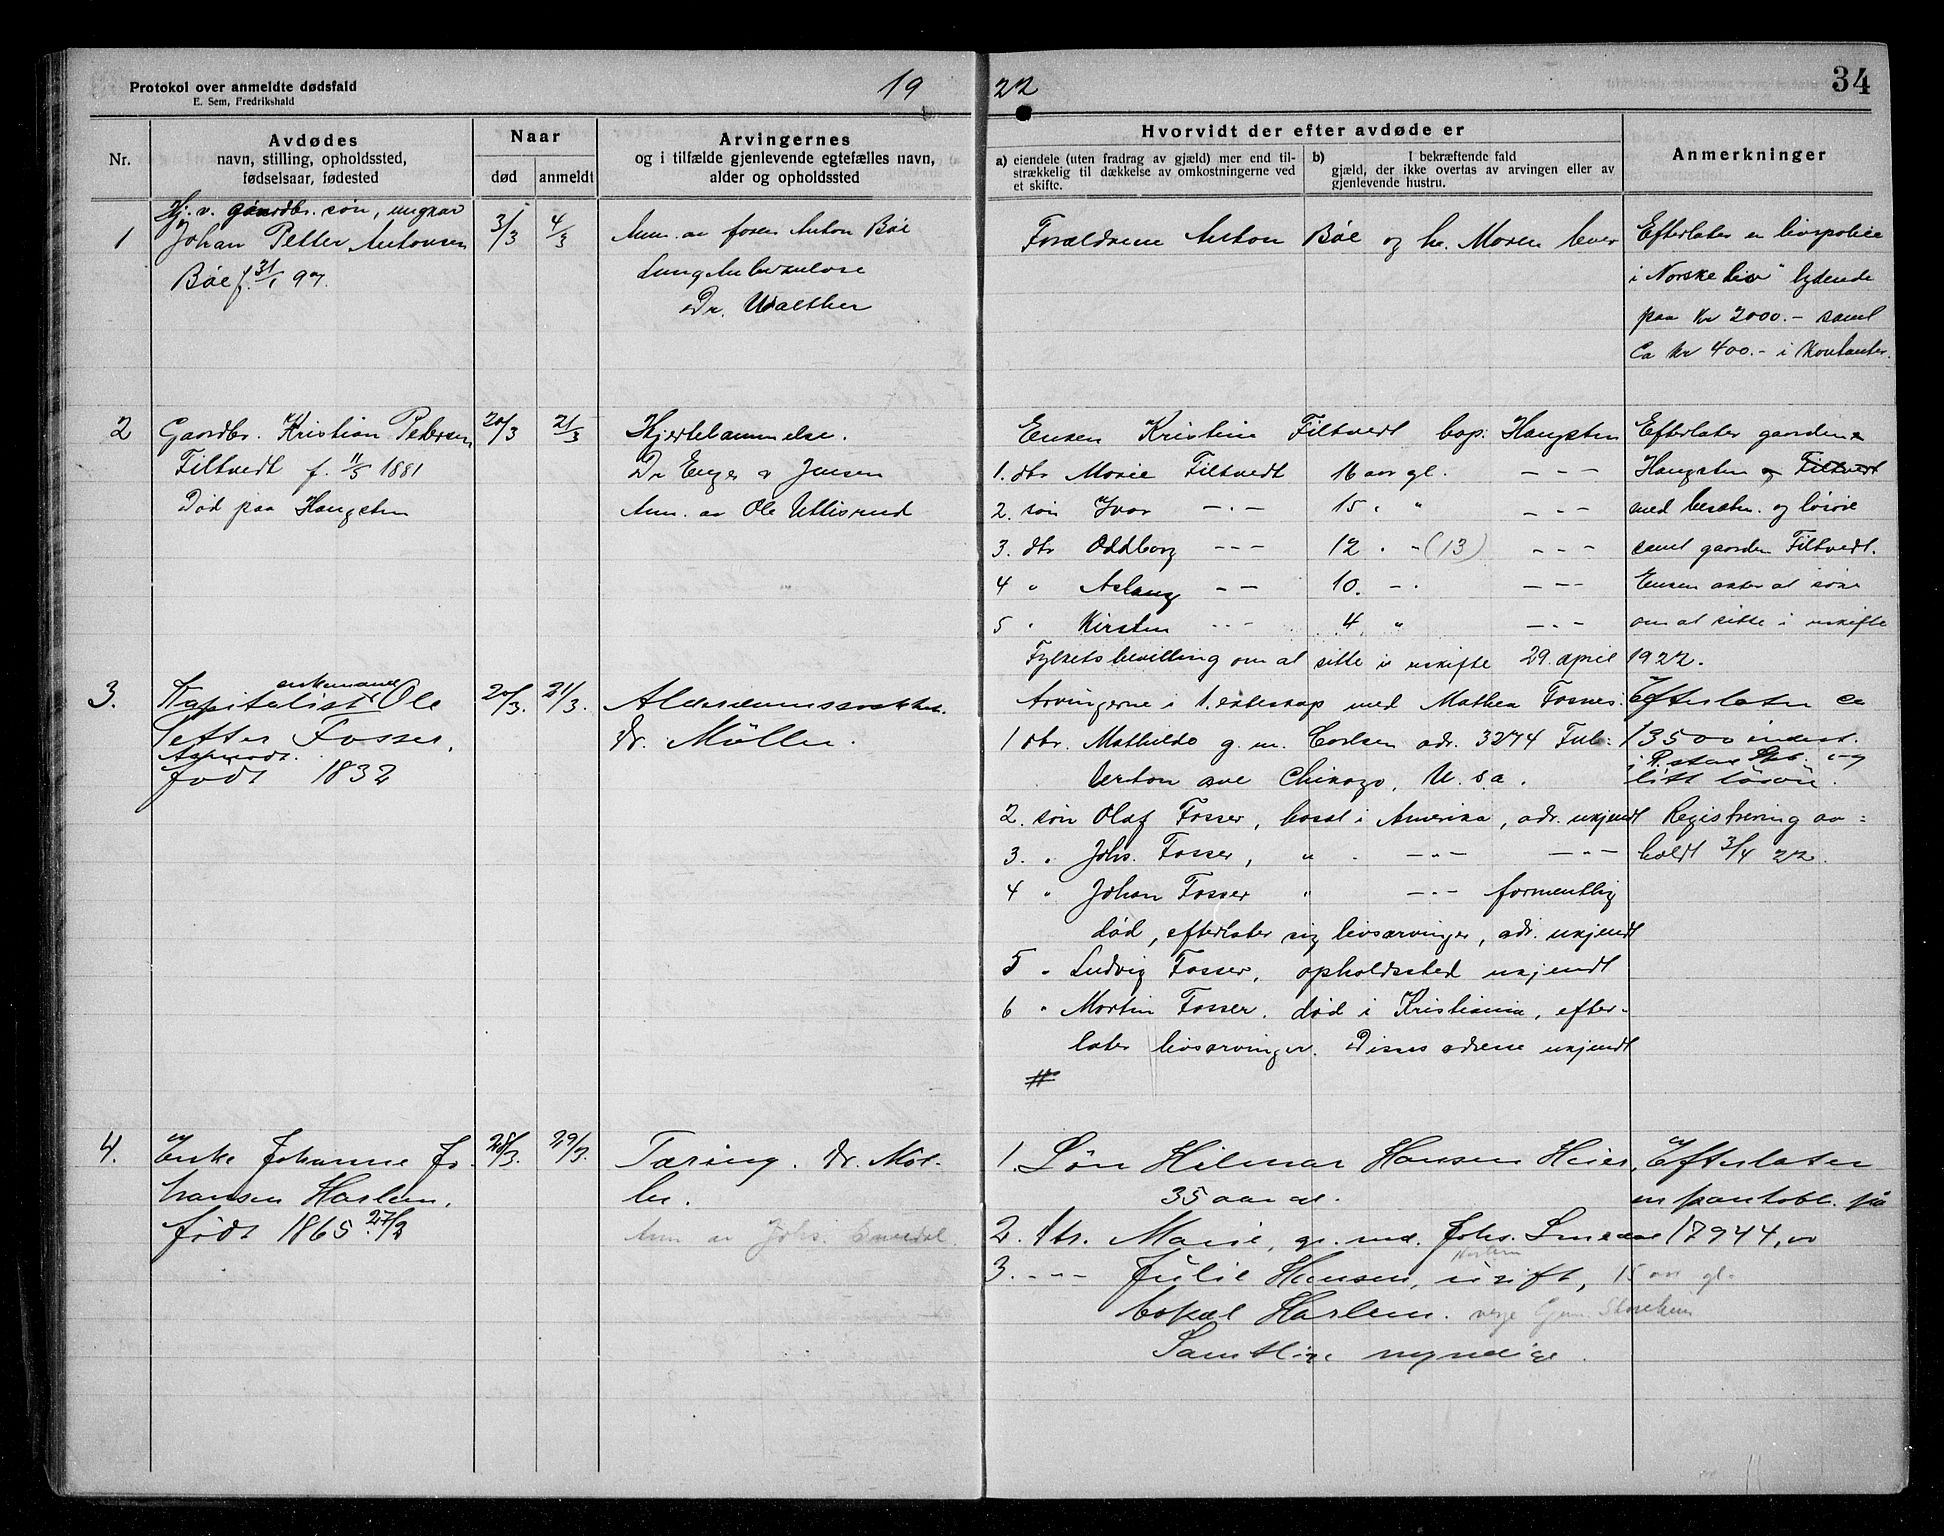 Protokol over anmeldte dødsfald
E. Sem, Fredrikshald
19 22
34
Nr.
Avdødes
navn, stilling, opholdssted,
fødselsaar, fødested
Naar
død
anmeldt
Arvingernes
og i tilfælde gjenlevende egtefælles navn,
alder og opholdssted
Hvorvidt der efter avdøde er
a) eiendele (uten fradrag av gjæld) mer end til-
strækkelig til dækkelse av omkostningerne ved
et skifte.
b) I bekræftende fald
gjæld, der ikke overtas av arvingen eller av
gjenlevende hustru.
Anmerkninger
1
Hj. v. gaardbr. søn, ungkar
Johan Petter Antonsen
Bøe f. 31/1 97.
3/3
4/3
Anm. av faren Anton Bøe
Lungtuberkulose
Dr. Walther
Forældrene Anton Bøe og h. Maren lever
Efterlater en livspolice
i "Norske liv" lydende
paa Kr 2000.- samt
Ca kr 400.- i Kontanter.
2
Gaardbr. Kristian Petersen
Filtvedt f. 11/5 1881
Død paa Haugsten
20/3
21/3
Hjertelammelse.
Dr Enger & Jensen
Anm. av Ole Uttisrud
Enken Kristine Filtvedt bop. Haugsten
1. dtr Marie Filtvedt 16 aar gl. - - -
2. søn Ivar - " - 15 " " - " -
3. dtr Oddborg - - - 12 " " (13) - - -
4 " Aslaug - - 10. - " - - -
5 " Kirsten - - - 4 " - - -
Fylketsbevilling om at sitte i uskifte 29. april 1922.
Efterlater gaardene
Haugsten og Filtvedt
med besætn. og løsøre
samt gaarden Filtvedt.
Enken akter at søke
om at sitte i uskifte
3.
Kapitalist enkemand Ole
Petter Fosser,
født 1832
20/3.
21/3.
Alderdomssvakhet.
Dr. Møller.
Arvingerne i 1. ekteskap med Mathea Fosser.
1 dtr. Mathilde g. m. Carlsen adr. 3274 Ful-
lerton ave Chikago, U. S. a.
2. søn Olaf Fosser, bosat i Amerika, adr. ukjendt
3. " Johs. Fosser, " - " - - " -
4 " Johan Fosser " - " - formentlig
død, efterlater sig livsarvinger, adr. ukjendt
5 " Ludvig Fosser, opholdssted ukjendt
6 " Martin Fosser. død i Kristiania, efter-
later livsarvinger. Disses adresse ukjendt
#
Efterlater ca
13500 indest.
i R.stad Spb. og
litt løsøre.
Registrering av-
holdt 3/4 22.
4.
Enke Johanne Jo-
hansen Harlem,
født 1865 27/2
28/3.
29/3.
Tæring. Dr. Møl-
ler.
Anm av Johs. Smedal.
1. Søn Hilmar Hansen Heier,
35 aar gl.
2. Dtr. Marie, g. m. Johs. Smedal
3. - - - Julie Hansen, ugift, 15 aar gl.
bopæl Harlem. verge
Samtlige myndige.
Efterlater
en pantobl. på
17944,00